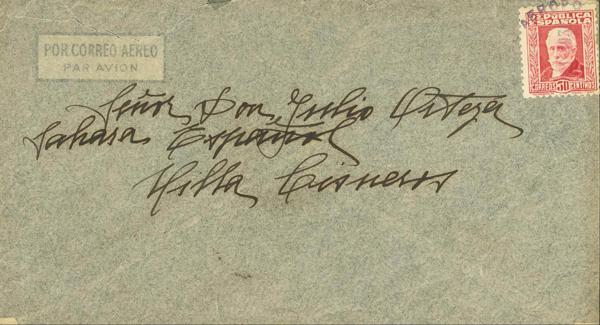 POR CORREO AEREO
PAR AVION
REPÚBLICA
ESPAÑOLA
CORREOS 30 CENTIMOS
Señor Don Julio Ortega
Sahara Español
Villa Cisneros